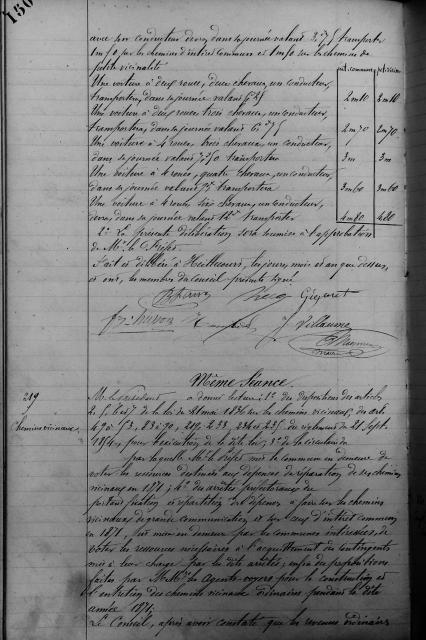 150
avec son conducteur devra dans sa journée valant 3.75 transporter
1m50 par les chemins d'intérêt commun et 1m50 sur les chemins de
petite vicinalité
Une voiture à deux roues, deux chevaux, un conducteur,
transportera, dans sa journée valant 2m10 2m10
Une voiture à deux roues trois chevaux, un conducteur,
transportera, dans sa journée valant 6f75 2m70 2m70
Une voiture à 4 roues, trois chevaux, un conducteur,
dans sa journée valant 7f50 transportera 3m 3m
Une voiture à 4 roues, quatre chevaux, un conducteur,
dans sa journée valant transportera 3m60 3m60
Une voiture à 4 roues six chevaux, un conducteur,
devra, dans sa journée valant transporter 4m80 480
2° La présente délibération sera soumise à l'approbation
de Mr. le Préfet.
Fait et délibéré à les jours, mois et an que dessus,
et ont, les membres du Conseil présents signé
Villaume
Même Séance.
219
Chemins vicinaux
M. le Président a donné lecture: 1° des dispositions des articles
2. 5. 6 et 7 de la loi du 21 mai 1836 sur les chemins vicinaux, des arts
du règlement du 21 Sept.
1854, pour l'exécution de la dite loi; 3° de la circulaire du
par laquelle Mr. le Préfet met la commune en demeure de
voter les ressources destinées aux dépenses de réparation de ses chemins
vicinaux en 1871; 4° des arrêtés préfectoraux du
portant fixation et répartition des dépenses à faire sur les chemins
vicinaux de grande communication et sur ceux d'intérêt commun
en 1871, mise en demeure par les communes intéressées, de
voter les ressources nécessaires à l'acquittement des contingents
mis à leur charge par les dits arrêtés; enfin des propositions
faites par MM. les Agents-voyers pour la construction et
l'entretien des chemins vicinaux ordinaires pendant la dite
année 1871;
Le Conseil, après avoir constaté que les revenus ordinaires